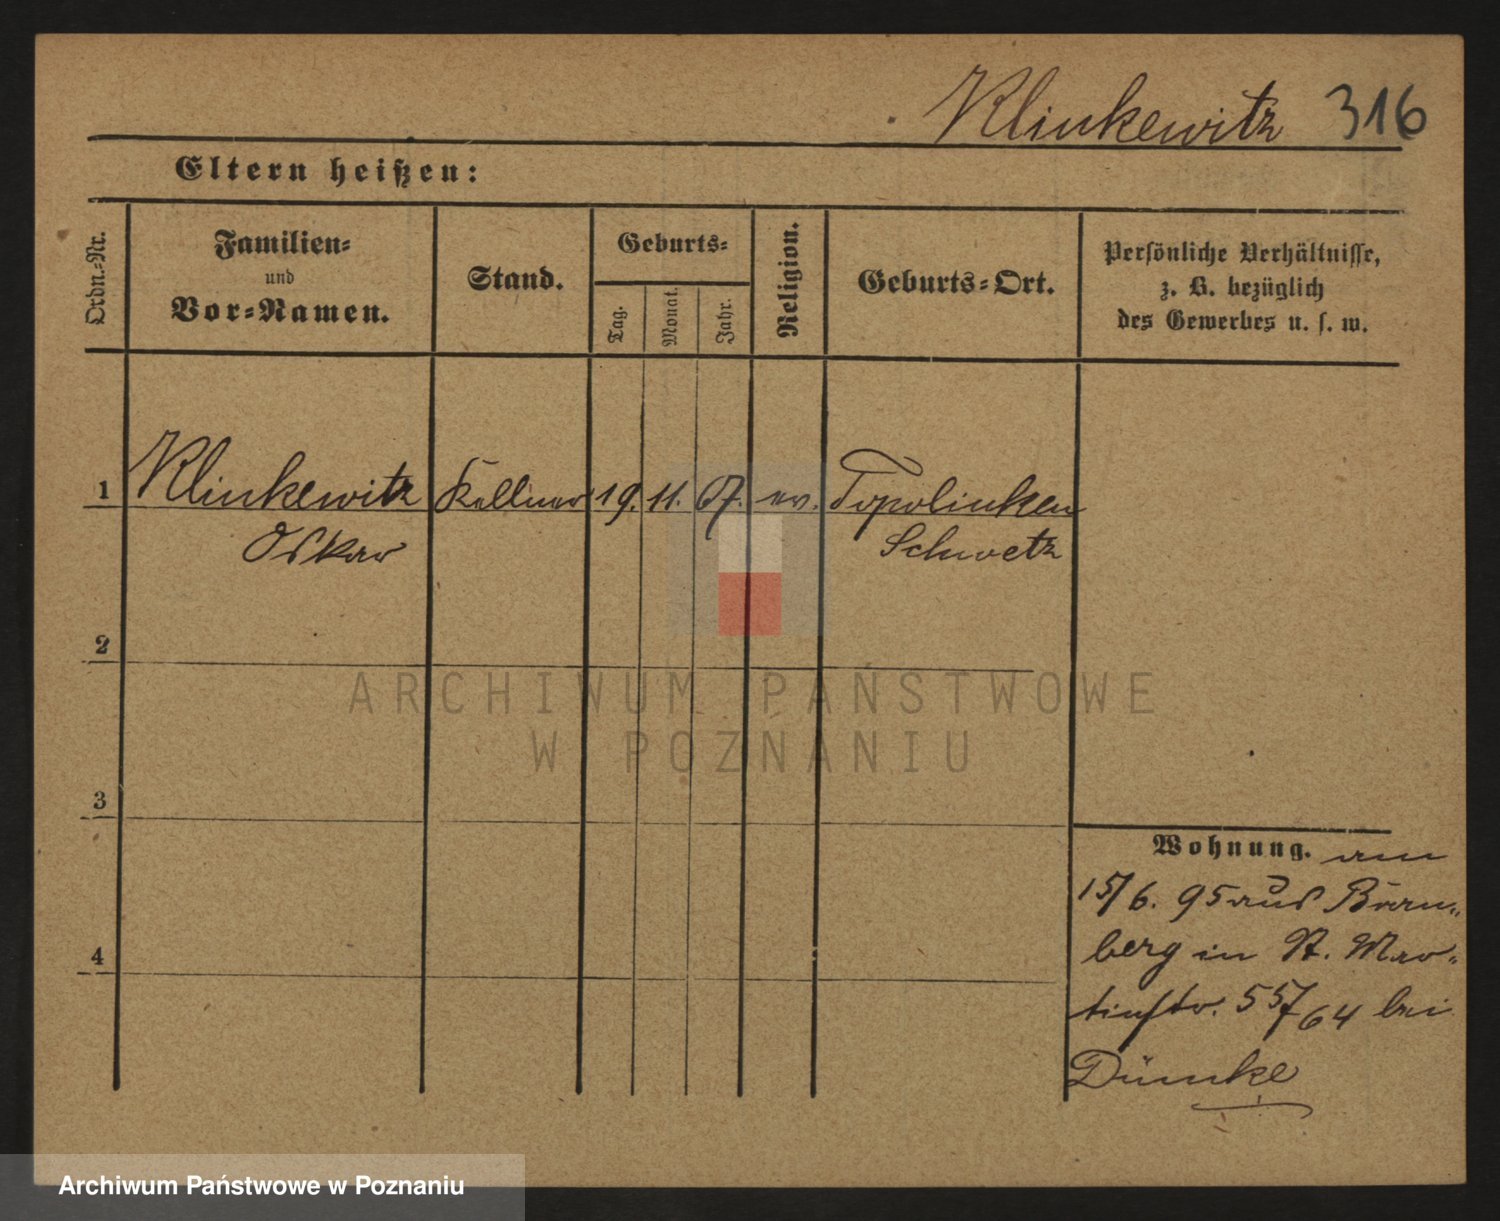 Klinkewitz 316
Eltern heißen:
Ordn.-Nr.
Familien-
und
Vor-Namen.
Stand.
Geburts-
Tag.
Monat.
Jahr.
Religion.
Geburts-Ort.
Persönliche Verhältnisse,
z. B. bezüglich
des Gewerbes u. s. w.
1 Klinkewitz Kellner 19. 11. 67. ev. Topolinken
Oskar Schwetz
2
3
4
Wohnung. am
15/6. 95 aus Brom-
berg in St. Mar-
tinstr. 55/64 bei
Dümke
ARCHIWUM PAŃSTWOWE
W POZNANIU
Archiwum Państwowe w Poznaniu